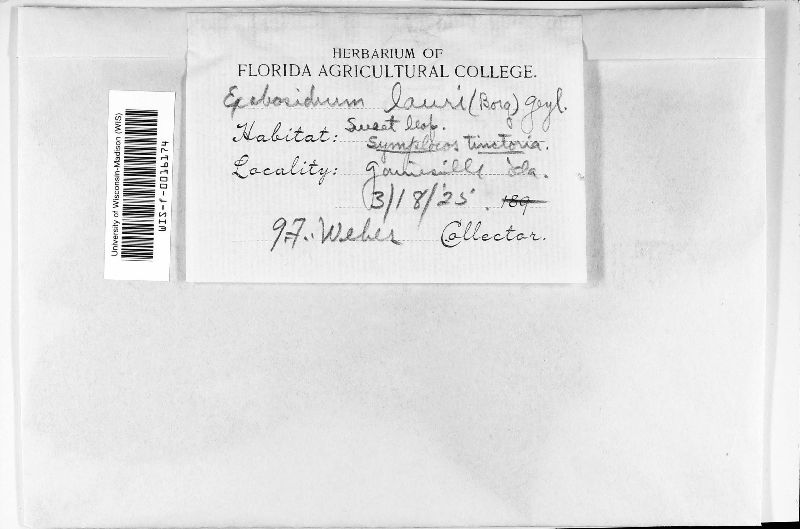 HERBARIUM OF
FLORIDA AGRICULTURAL COLLEGE.
Exobasidium lauri (Borg) Geyl.
Habitat: Sweet leaf.
Symplocos tinctoria.
Locality: Gainesville Fla.
3/18/25. 189
G.F. Weber Collector.
University of Wisconsin-Madison (WIS)
WIS-f-0016174